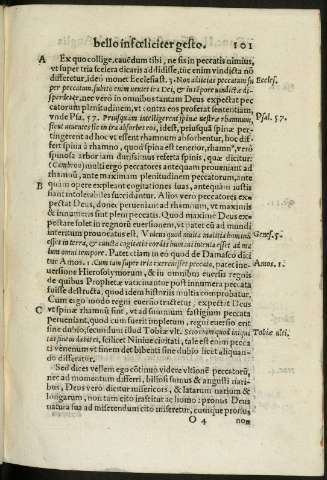 bello infœliciter gesto. 101
A Ex quo collige, cauēdum tibi, ne sis in peccatis nimius,
vt super tria scelera dicaris addidisse, tūc enim vindicta nō
differetur, ideō monet Ecclesiast. 3. Non adiicias peccatum su Eccles.
per peccatum, subito enim veniet ira Dei, & in tēpore uindictæ di-
sperdet te, nec verō in omnibus tantam Deus expectat pec
catorum plenitudinem, vt contra eos proferat sententiam,
vnde Psa. 57. Priusquam intelligerent spinæ uestræ rhamnum, Psal. 57.
sicut uiuentes sic in ira absorbet eos, idest, priusquā spinæ per-
tingerent ad hoc vt essent rhamnus absorbentur, hoc dif
fert spina à rhamno, quod spina est tenerior, rhamnꝰ, verò
spinosa arbor iam durissimis referta spinis, quæ dicitur:
(Cambro) multi ergo peccatores antequam proueniant ad
rhamnū, ante maximam plenitudinem peccatorum, ante
B quàm opere expleant cogitationes suas, antequàm iustis
fiant intolerabiles succidantur. Alios vero peccatores ex-
pectat Deus, donec perueniant ad rhamnum, vt maximis
& innumeris sint pleni peccatis. Quod maximè Deus ex-
pectare solet in regnorū euersionem, vt patet cū ad mundi
interitum prouocatus est. Videns Deus quòd multa malitia hominū Genes. 5.
esset in terra, & cuncta cogitatio cordis humani intenta esset ad ma
lum omni tempore. Patet etiam in eo quod de Damasco dici
tur Amos. 1. Cum tam super tria euersa sisset peccata, patet in e- Amos. 1.
uersione Hierosolymorum, & in omnibus euersis regnis
de quibus Prophetæ vaticinantur post innumera peccata
fuisse destructa, quod idem historiis multis comprobatur.
Cum ergo modo regni euersio tractetur, expectat Deus
C vt spinæ rhamnū sint, vt ad summum fastigium peccata
perueniant, quod cum fuerit impletum, regni euersio erit
sine dubio, secundum illud Tobiæ vlt. Tobiæ ulti.
scilicet Niniue ciuitati, tale est enim pecca
ti venenum vt finem det bibenti sine dubio licet aliquan-
do differatur.
Sed dices vellem ego cōtinuò videre vltionē peccatorū,
nec ad momentum differri, biliosi sumus & angustī nari-
bus, Deus verò dicitur misericors, & latarum narium &
longarum, non tam cito irascitur ac homo: pronus Deus
natura sua ad miserendum cito miseretur, eumque prorsus
O 4 non